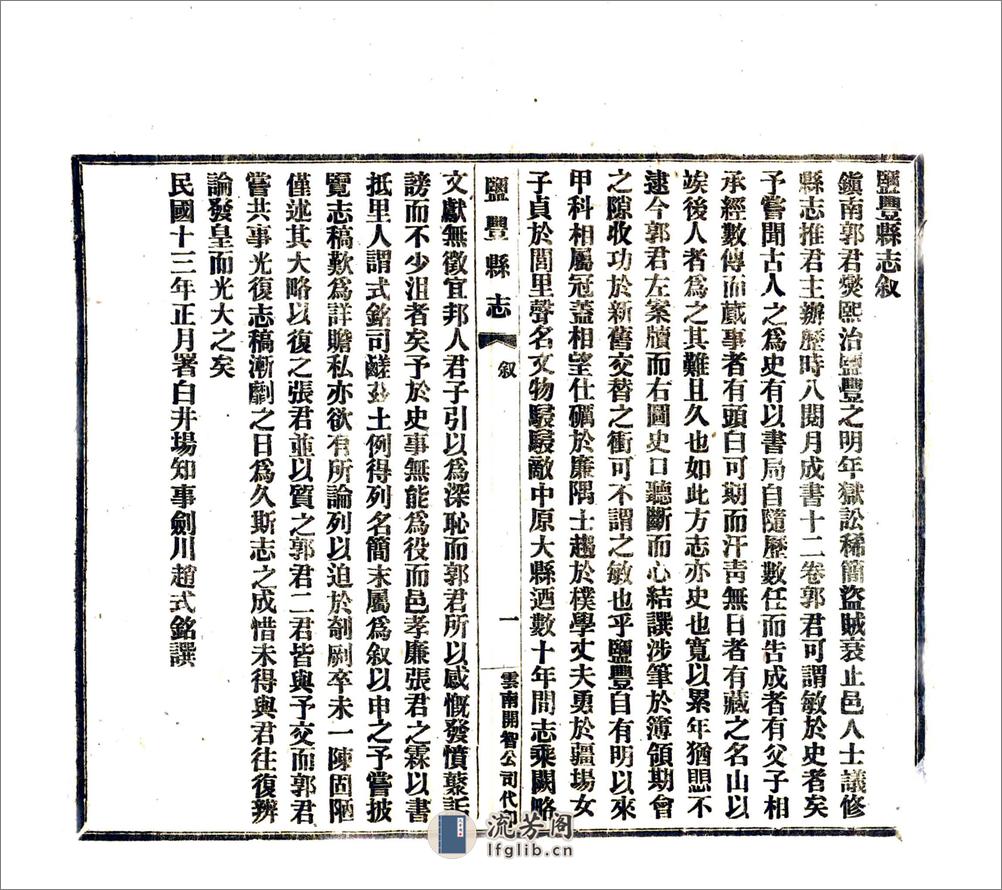 鹽豐縣志叙
鎭南郭君燮熙治鹽豐之明年獄訟稀簡盜賊衰止邑人士議修
縣志推君主辦歷時八閱月成書十二卷郭君可謂敏於史者矣
予嘗聞古人之爲史有以書局自隨歷數任而告成者有父子相
承經數傳而蕆事者有頭白可期而汗靑無日者有藏之名山以
竢後人者爲之其難且久也如此方志亦史也寬以累年猶恐不
逮今郭君左案牘而右圖史口聽斷而心結譔涉筆於簿領期會
之隙收功於新舊交替之衝可不謂之敏也乎鹽豐自有明以來
甲科相屬冠蓋相望仕礪於廉隅士趨於樸學丈夫勇於疆場女
子貞於閭里聲名文物駸駸敵中原大縣迺數十年間志乘闕略
鹽豐縣志
叙
一
雲南開智公司代印
文獻無徵宜邦人君子引以爲深恥而郭君所以感慨發憤蘉訴
謗而不少沮者矣予於史事無能爲役而邑孝廉張君之霖以書
抵里人謂式銘司鹺玆土例得列名簡末屬爲叙以申之予嘗披
覽志稿歎爲詳贍私亦欲有所論列以迫於剞劂卒未一陳固陋
僅述其大略以復之張君並以質之郭君二君皆與予交而郭君
嘗共事光復志稿漸劘之日爲久斯志之成惜未得與君往復辨
論發皇而光大之矣
民國十三年正月署白井場知事劍川趙式銘譔
流芳阁
lfglib.cn